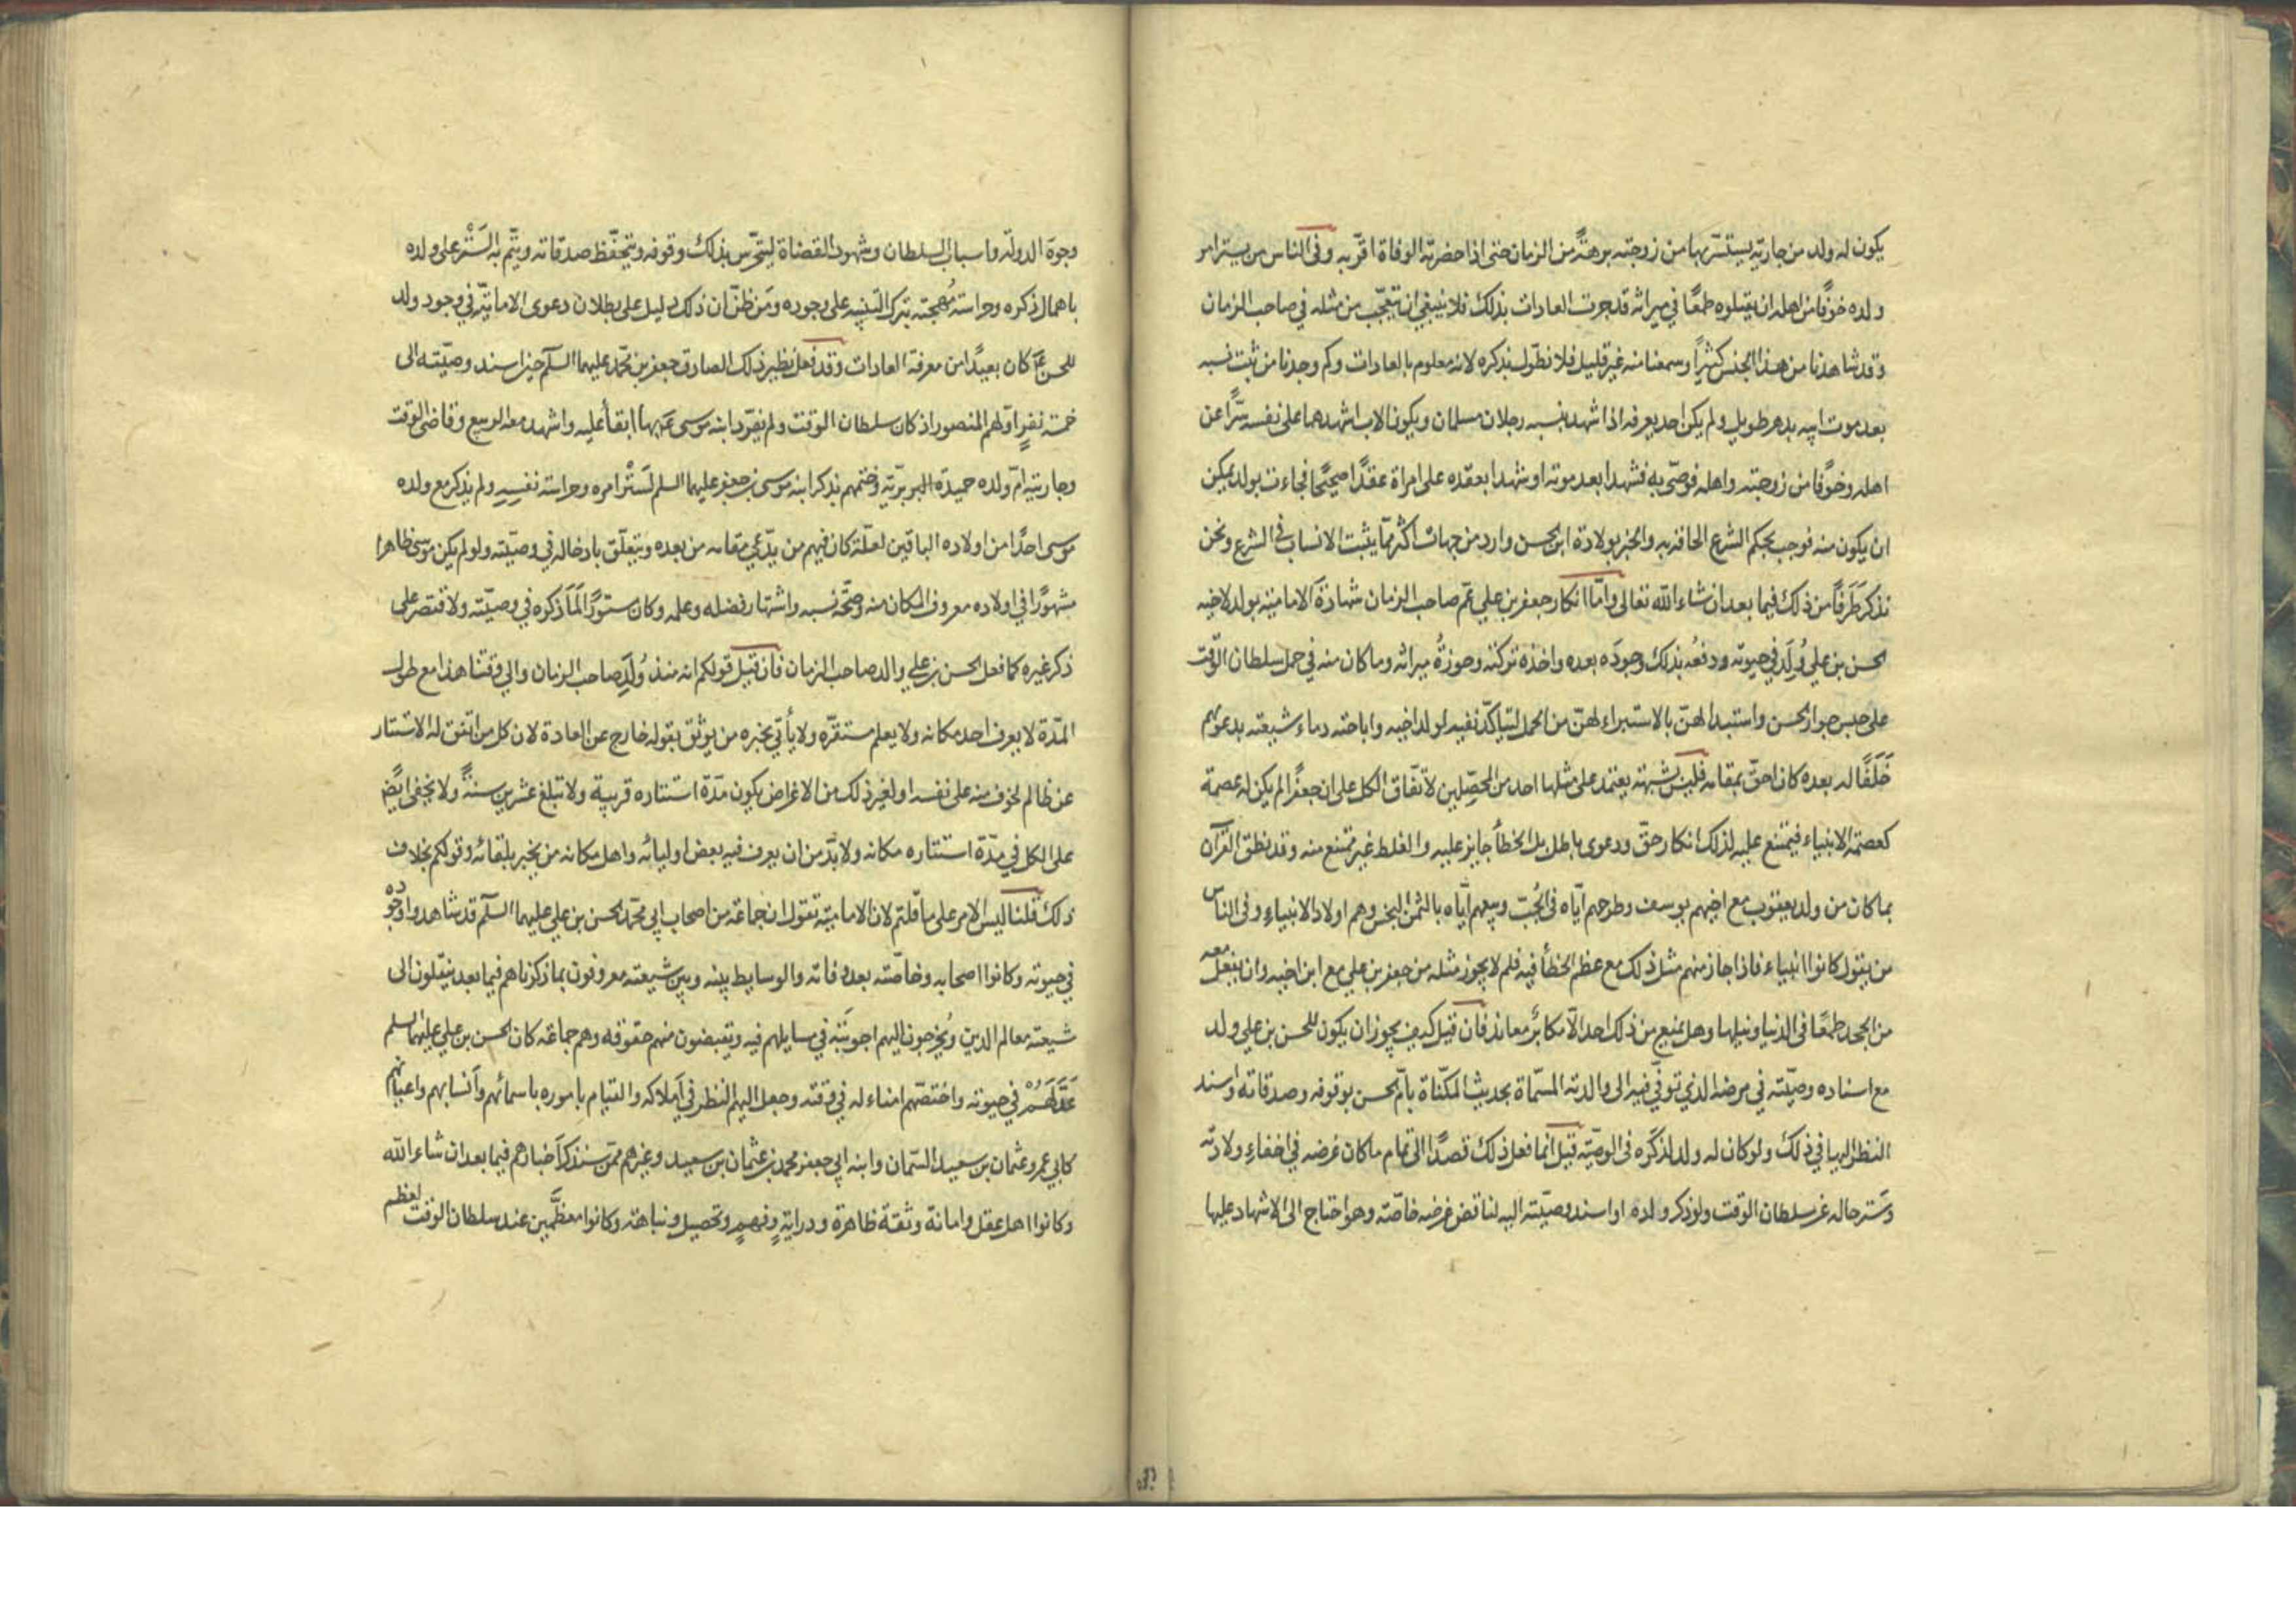 يكون له ولد من جارية يستسرّبها من زوجته برهةً من الزمان حتى اذا حضرته الوفاة اقرّ به وفي الناس من يستر امر
ولده خوفًا من اهله ان يقتلوه طمعًا في ميراثه قد جرت العادات بذلك فلا ينبغي ان يتعجّب من مثله في صاحب الزمان
وقد شاهدنا من هذا الجنس كثيرًا وسمعنا منه غير قليل فلا نطوّل بذكره لانه معلوم بالعادات وكم وجدنا من ثبت نسبه
بعد موت ابيه بدهر طويل ولم يكن احد يعرفه اذا شهد بنسبه رجلان مسلمان ويكون الاب اشهدهما على نفسه سرًّا عن
اهله وخوفًا من زوجته واهله فوصّى به فشهدا بعد موته او شهدا بعقده على امراة عقدًا صحيحًا فجاءت بولد يمكن
ان يكون منه فوجب بحكم الشرع الحاقه به والخبر بولادة ابن الحسن وارد من جهات اكثر ممّا يثبت الانساب في الشرع ونحن
نذكر طَرَفًا من ذلك فيما بعد ان شاء الله تعالى وامّا انكار جعفر بن علي عم صاحب الزمان شهادة الامامية بولد لاخيه
الحسن بن علي وُلِدَ في حيوته ودفعُه بذلك وجودَه بعده واخذه تركته وحوزُهُ ميراثه وما كان منه في حمل سلطان الوقت
على حبس جوار الحسن واستبدالهنّ بالاستبراء لهنّ من الحمل ليتأكّد نفيه لولد اخيه واباحته دماء شيعته بدعوٰهم
خَلَفًا له بعده كان احقّ بمقامه فليس بشبهة يعتمد على مثلها احد من المحصّلين لاتّفاق الكل على ان جعفرًا لم يكن له عصمة
كعصمة الانبياء فيمتنع عليه لذلك انكار حقّ ودعوى باطل بل الخطأ جايز عليه والغلط غير ممتنع منه وقد نطق القرآن
بما كان من ولد يعقوب مع اخيهم يوسف وطرحهم ايّاه في الجُبّ وبيعهم ايّاه بالثمن البخس وهم اولاد الانبياء وفي الناس
من يقول كانوا انبياء فاذا جاز منهم مثل ذلك مع عظم الخطأ فيه فلم لا يجوز مثله من جعفر بن علي مع ابن اخيه وان يفعل معه
من الجحد طمعًا في الدنيا ونيلها وهل يمنع من ذلك احد الّا مكابرٌ معاند فان قيل كيف يجوز ان يكون للحسن بن علي ولد
مع اسناده وصيّته في مرضه الذي توفّي فيه الى والدته المسمّاة بحديث المكنّاة بامّ الحسن بوقوفه وصدقاته واسند
النظر اليها في ذلك ولو كان له ولد لذكره في الوصيّة قيل انّما فعل ذلك قصدًا الى تمام ما كان غرضه في اخفاء ولادته
وسَتر حاله عن سلطان الوقت ولو ذكر ولده او اسند وصيّته اليه لناقض غرضه خاصّته وهو احتاج الى الاشهاد عليها
وجوهَ الدولة واسباب السلطان وشهود القضاة ليتحرّس بذلك وقوفه ويتحفّظ صدقاته ويتّم به السَتْر على ولده
باهمال ذكره وحراسته مُهجته بترك التنبيه على وجوده ومَن ظنّ ان ذلك دليل على بطلان دعوى الاماميّة في وجود ولد
للحسن عَمَ كان بعيدًا من معرفة العادات وقد فعل نظير ذلك الصادق جعفر بن محمّد عليهما السلم حين اسند وصيّته الى
خمسة نفرٍ اوّلهم المنصور اذ كان سلطان الوقت ولم يفرّد ابنه موسى عَم بها ابقاءً عليه واشهد معه الربيع وقاضي الوقت
وجاريته امّ ولده حميدة البربريّة وختمهم بذكر ابنه موسى بن جعفر عليهما السلم لسَتْر امره وحراسته نفسِهِ ولم يذكر مع ولده
موسى احدًا من اولاده الباقين لعلّه كان فيهم من يدّعي مقامه من بعده ويتعلّق بادخاله في وصيّته ولو لم يكن موسى ظاهرا
مشهورًا في اولاده معروف المكان منه وصحّة نسبه واشتهار فضله وعلمه وكان مستورًا لَمَا ذكره في وصيّته ولاقتصر على
ذكر غيره كما فعل الحسن بن علي والد صاحب الزمان فان قيل قولكم انه منذ وُلِدَ صاحب الزمان والى وقتنا هذا مع طول
المدّة لا يعرف احد مكانه ولا يعلم مستقرّه ولا يأتي بخبره من يوثق بقوله خارج عن العادة لان كل من اتفق له الاستتار
عن ظالم لخوف منه على نفسه او لغير ذلك من الاغراض يكون مدّة استتاره قريبة ولا تبلغ عشرين سنةً ولا يخفى ايضًا
على الكل في مدّة استتاره مكانه ولا بدّ من ان يعرف فيه بعض اوليائه واهل مكانه من يخبر بلقائه وقولكم بخلاف
ذلك قلنا ليس الامر على ما قلتم لان الامامية تقول ان جماعة من اصحاب ابي محمّد الحسن بن علي عليهما السلم قد شاهدوا وجوده
في حيوته وكانوا اصحابه وخاصّته بعد وفاته والوسايط بينه وبين شيعته معروفون بما ذكرناهم فيما بعد ينقلون الى
شيعته معالم الدين ويُخرجون اليهم اجوبَتَه في مسايلهم فيه ويقبضون منهم حقوقه وهم جماعة كان الحسن بن علي عليهما السلم
عَدَّلَهُمْ في حيوته واختصّهم امناء له في وقته وجعل اليهم النظر في اَملاكه والقيام باموره باسمائهم وَاَنسابهم واعيانهم
كابي عمرو عثمان بن سعيد السمّان وابنه ابي جعفر محمد بن عثمان بن سعيد وغيرهم ممّن سنذكر اَخبارهم فيما بعد ان شاء الله
وكانوا اهل عقل وامانة وثقة ظاهرة ودرايةٍ وفهمٍ وتحصيل ونباهة وكانوا معظّمين عند سلطان الوقت لعظم